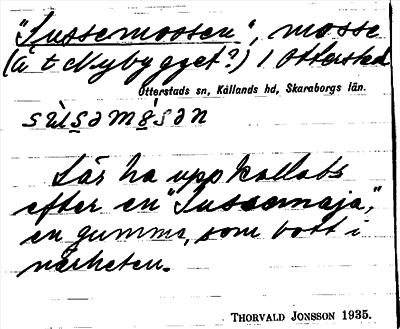 "Sussemossen", mosse
(å t Nybygget?) i Otterstad
Otterstads sn, Kållands hd, Skaraborgs län.
sùsəmósən
Lär ha uppkallats
efter en "Sussemaja",
en gumma, som bott i
närheten.
THORVALD JONSSON 1935.